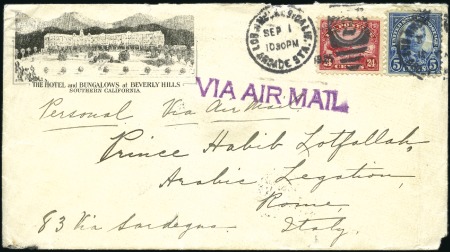 THE HOTEL and BUNGALOWS at BEVERLY HILLS
SOUTHERN CALIFORNIA.
SEP 1
1030PM
ARCADE STA.
24 24
5 5
VIA AIR MAIL
Personal Via Air Mail
Prince Habib Lotfallah,
Arabic Legation,
Rome,
83 Via Sardegna Italy.